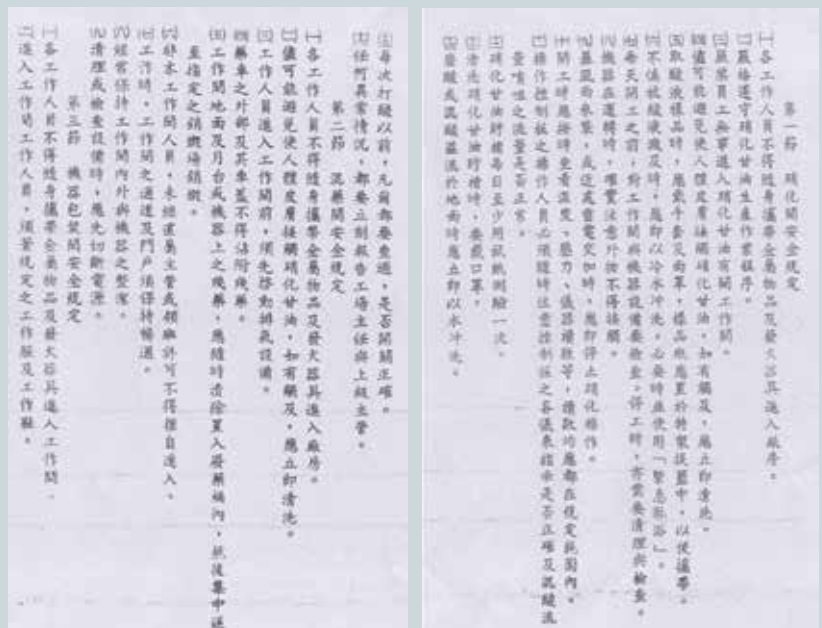 第一節　硝化間安全規定
㈠各工作人員不得隨身攜帶金屬物品及發火器具進入廠房。
㈡嚴格遵守硝化甘油生產作業程序。
㈢嚴禁員工無事進入硝化甘油有關工作間。
㈣儘可能避免使人體皮膚接觸硝化甘油，如有觸及，應立即清洗。
㈤取酸液樣品時，應戴手套及面罩，樣品瓶應置於特製護籃中，以便攜帶。
不慎被酸液濺及時，應即以冷水沖洗，必要時並使用「緊急淋浴」。
每天開工之前，對工作間與機器設備要檢查，停工時，亦需要清理與檢查。
機器在運轉時，確實注意外物不得接觸。
暴風雨來襲，或近處雷電交加時，應即停止硝化操作。
開工時應按時查看溫度、壓力、儀器讀數等，讀數均應都在規定範圍內。
操作控制板之操作人員必須隨時注意控制板之各儀表指示是否正確及混酸流
量噴嘴之流量是否正常。
硝化甘油貯槽每日至少用試紙測驗一次。
清洗硝化甘油貯槽時，要戴口罩。
廢酸或混酸溢流於地面時應立即以水沖洗。
每次打酸以前，凡爾都要查過，是否開關正確。
任何異常情況，都要立刻報告工場主任與上級主管。
第二節　混藥間安全規定
㈠各工作人員不得隨身攜帶金屬物品及發火器具進入廠房。
㈡儘可能避免使人體皮膚接觸硝化甘油，如有觸及，應立即清洗。
㈢工作人員進入工作間前，須先啓動排氣設備。
㈣藥車之外部及其車蓋不得沾附殘藥。
㈤工作間地面及月台或機器上之殘藥，應隨時清除置入廢藥桶內，然後集中送
至指定之銷燬場銷燬。
㈥非本工作間人員，未經直屬主管或領班許可不得擅自進入。
工作時，工作間之通道及門戶須保持暢通。
經常保持工作間內外與機器之整潔。
清理或檢查設備時，應先切斷電源。
第三節　機器包裝間安全規定
㈠各工作人員不得隨身攜帶金屬物品及發火器具進入工作間。
㈡進入工作間工作人員，須著規定之工作服及工作鞋。